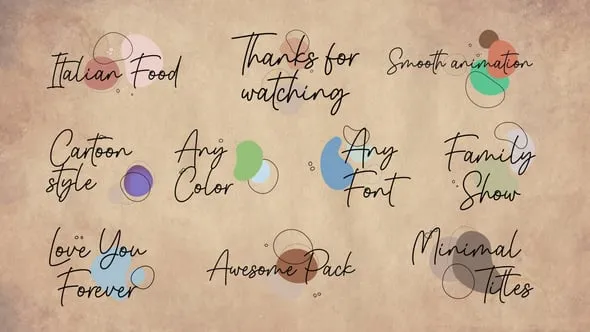 Italian Food
Thanks for
watching
Smooth animation
Cartoon
style
Any
Color
Any
Font
Family
Show
Love You
Forever
Awesome Pack
Minimal
Titles